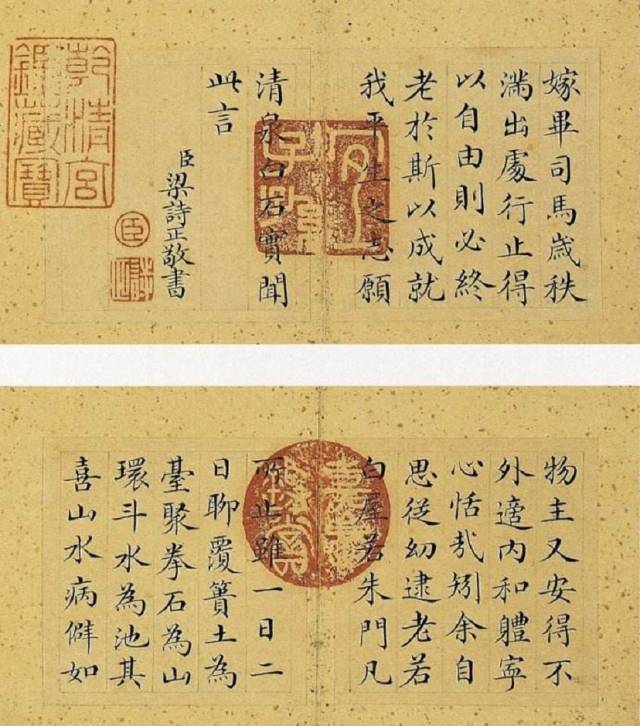 嫁畢司馬歲秩
滿出處行止得
以自由則必終
老於斯以成就
我平生之志願
清泉白石實聞
此言
臣梁詩正敬書
臣
乾清宮
鑑藏寶
物主又安得不
外適内和體寧
心恬哉矧余自
思從幼逮老若
白屋若朱門凡
所止雖一日二
日聊覆簣土為
臺聚拳石為山
環斗水為池其
喜山水病僻如